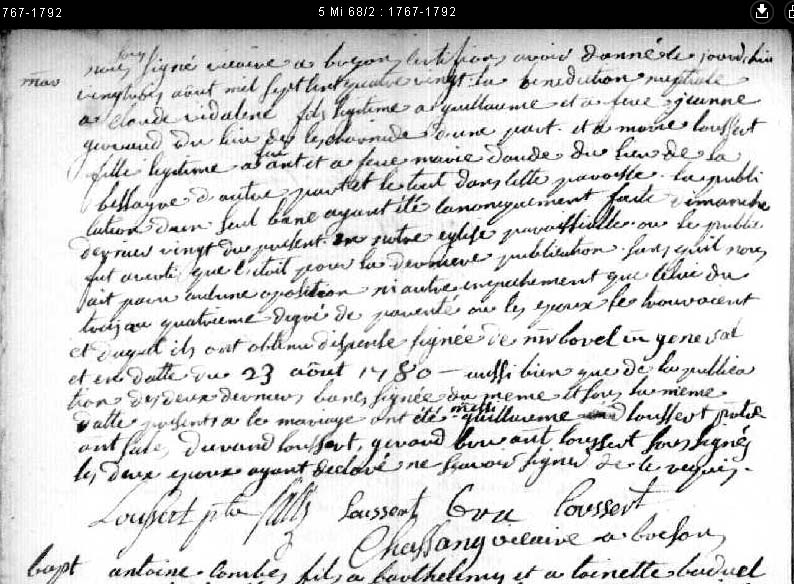 767-1792
5 Mi 68/2 : 1767-1792
mar
nous signé vicaire a certifions avoir donné le jourdhui
vingt aôut mil sept cent quatre vingt la benediction nuptiale
a claude vidalene fils legitime a guillaume et a feue jeanne
geraud du lieu de d'une part et a marie loussert
fille legitime a ant et a feue marie daude du lieu de la
bessayre d'autre part et le tout dans cette paroisse la publi
cation d'un seul banc ayant été canoniquement faite dimanche
dernier vingt du present en notre eglise paroissialle ou le public
fut averti que c'etoit pour la derniere publication sans qu'il nous
ait paru aucune oposition ni autre empechement que celui du
trois au quatrieme degré de parenté ou les epoux se trouvoient
et duquel ils ont obtenu dispense signée de mr vic general
et en datte du 23 aôut 1780 – aussi bien que de la publica
tion des deux derniers bancs signée du meme et sous la meme
datte presents a ce mariage ont été messire guillaume loussert pretre
durand loussert, geraud ant loussert soussignés
les deux epoux ayant declaré ne sçavoir signer de ce requis.
Loussert ptre Loussert Loussert
Chassang vicaire a
bapt antoine combes fils a barthelemy et a toinette